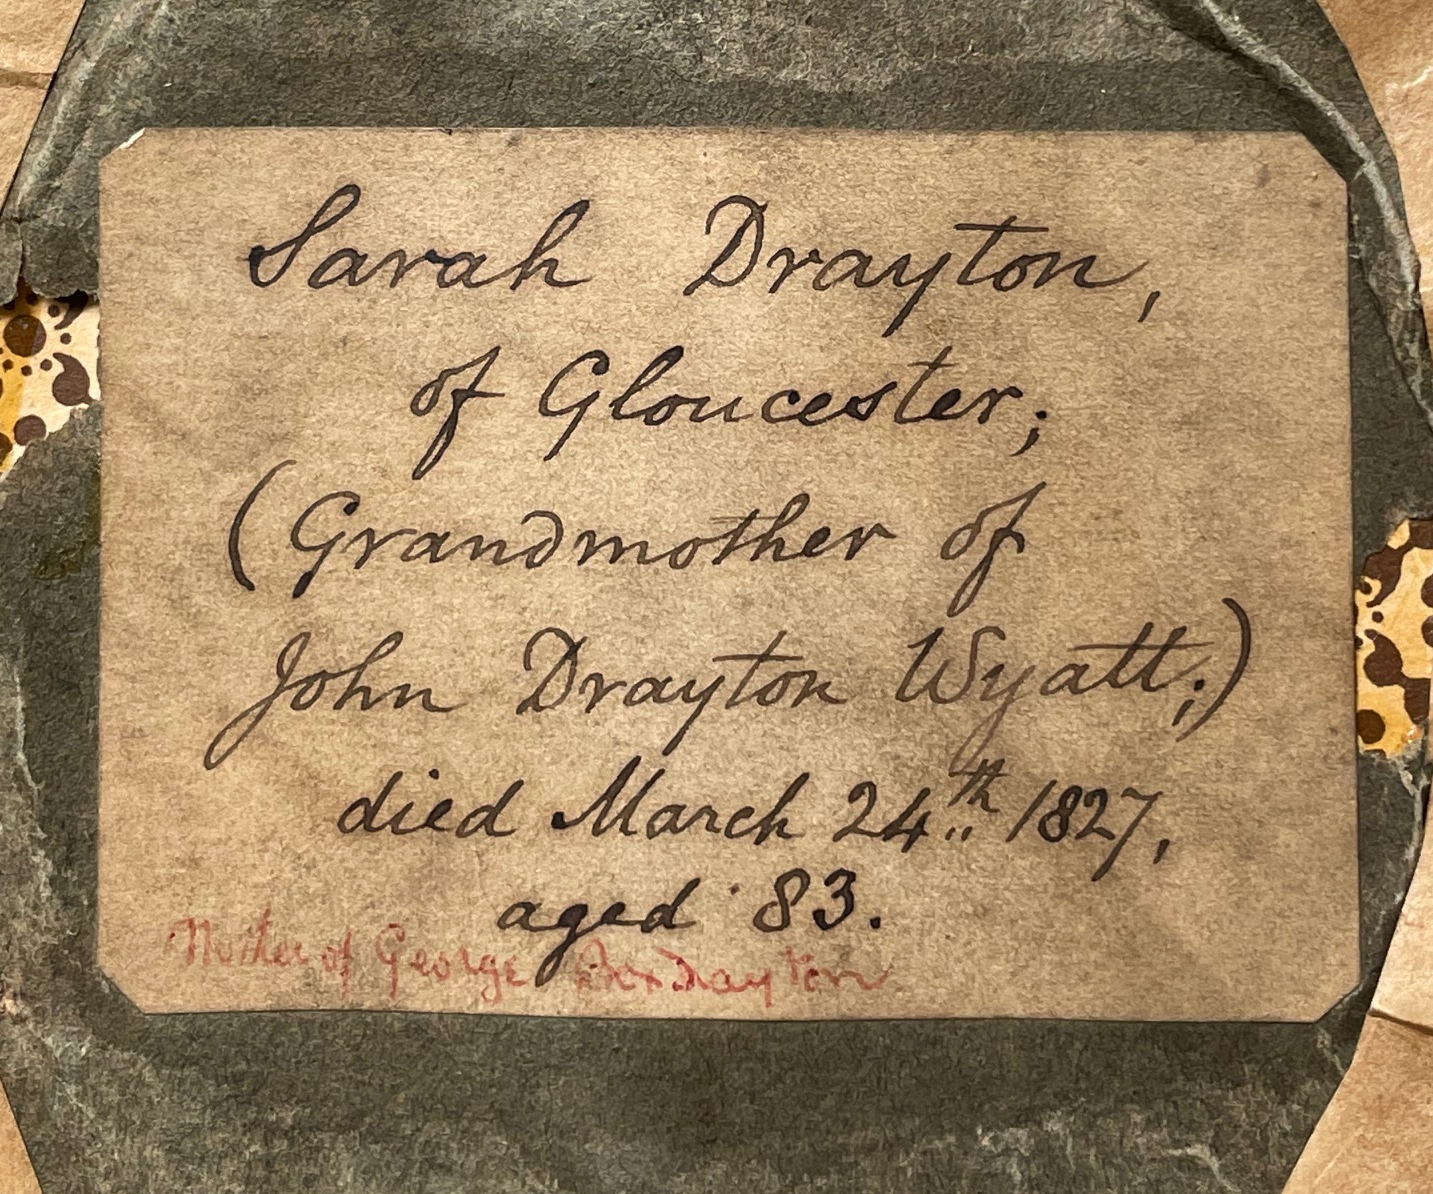 Sarah Drayton,
of Gloucester;
(Grandmother of
John Drayton Wyatt;)
died March 24th 1827,
aged 83.
Mother of George Drayton